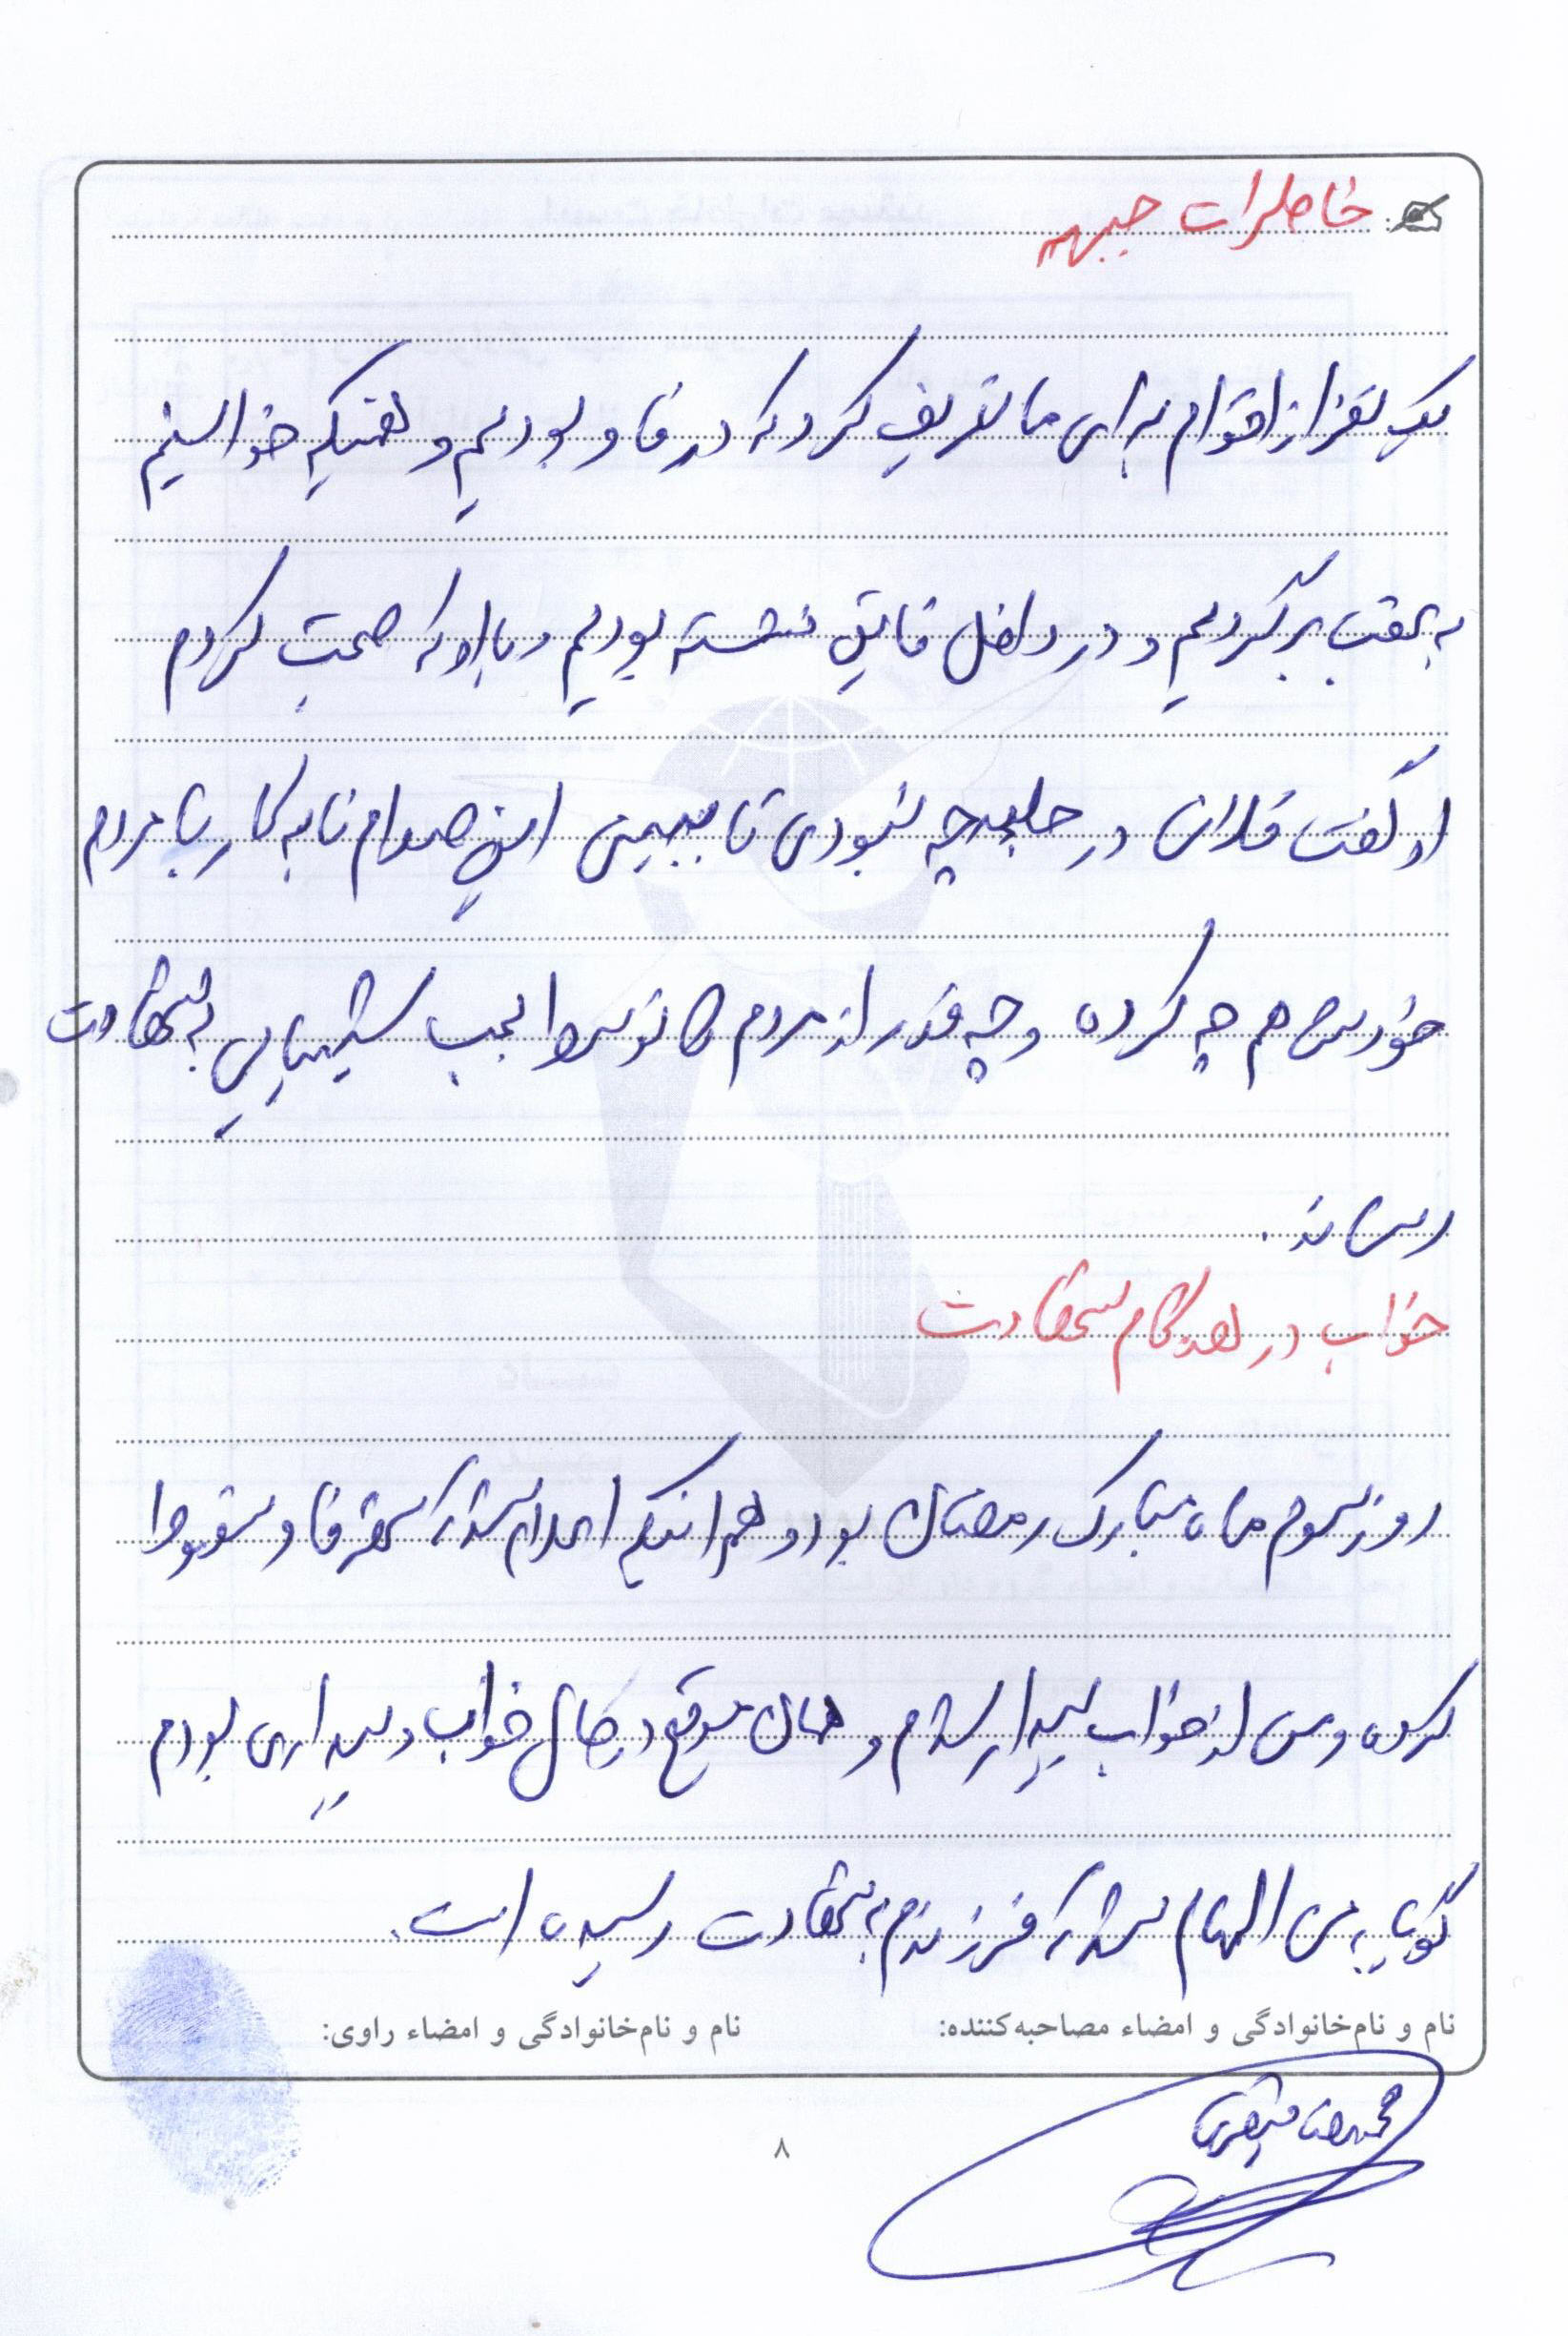 خاطرات جبهه
یک نفر از اقوام برای ما تعریف کرد که در فاو بودیم وقتیکه خواستیم
به عقب برگردیم و در داخل قایق نشسته بودیم و با او که صحبت کردم
او گفت فلانی در حلبچه نبودی تا ببینی این صدام نابه کار با مردم
خودش هم چه کرده و چه قدر از مردم را بمب شیمیایی به شهادت
رساند.
خواب در هنگام شهادت
روز سوم ماه مبارک رمضان بود و هم اینکه اعلام شد که شهر فاو سقوط
کرده و من از خواب بیدار شدم و همان موقع در حال خواب و بیداری بودم
گویا به من الهام شد که فرزندم به شهادت رسیده است.
نام و نام‌خانوادگی و امضاء مصاحبه‌کننده:
نام و نام‌خانوادگی و امضاء راوی:
۸